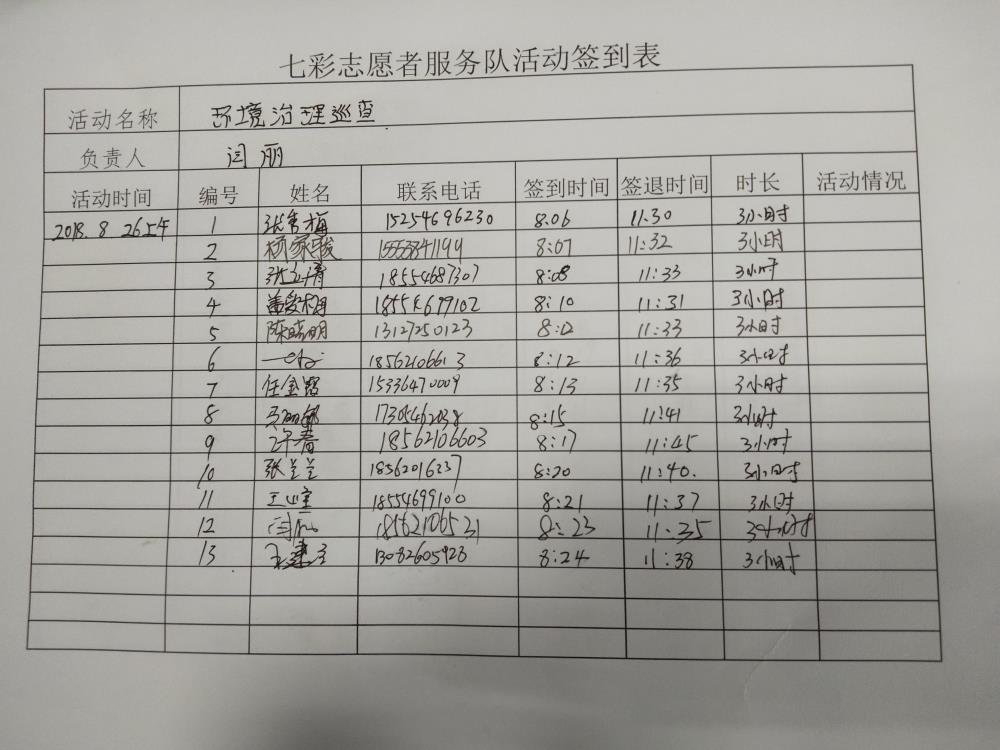 七彩志愿者服务队活动签到表
活动名称 环境治理巡查
负责人 闫丽
活动时间 编号 姓名 联系电话 签到时间 签退时间 时长 活动情况
2018. 8 26上午 1 张秀梅 15254696230 8:06 11:30 3小时
2 杨家骏 15558341199 8:07 11:32 3小时
3 18554687307 8:08 11:33 3小时
4 18554699102 8:10 11:31 3小时
5 陈晓明 13127250123 8:12 11:33 3小时
6 8:12 11:36 3小时
7 任金 15336470009 8:13 11:35 3小时
8 17305462038 8:15 11:41 3小时
9 18562106603 8:17 11:45 3小时
10 张兰兰 8:20 11:40. 3小时
11 18554699100 8:21 11:37 3小时
12 闫 18562106531 8:23 11:35 3小时
13 13082605928 8:24 11:38 3小时